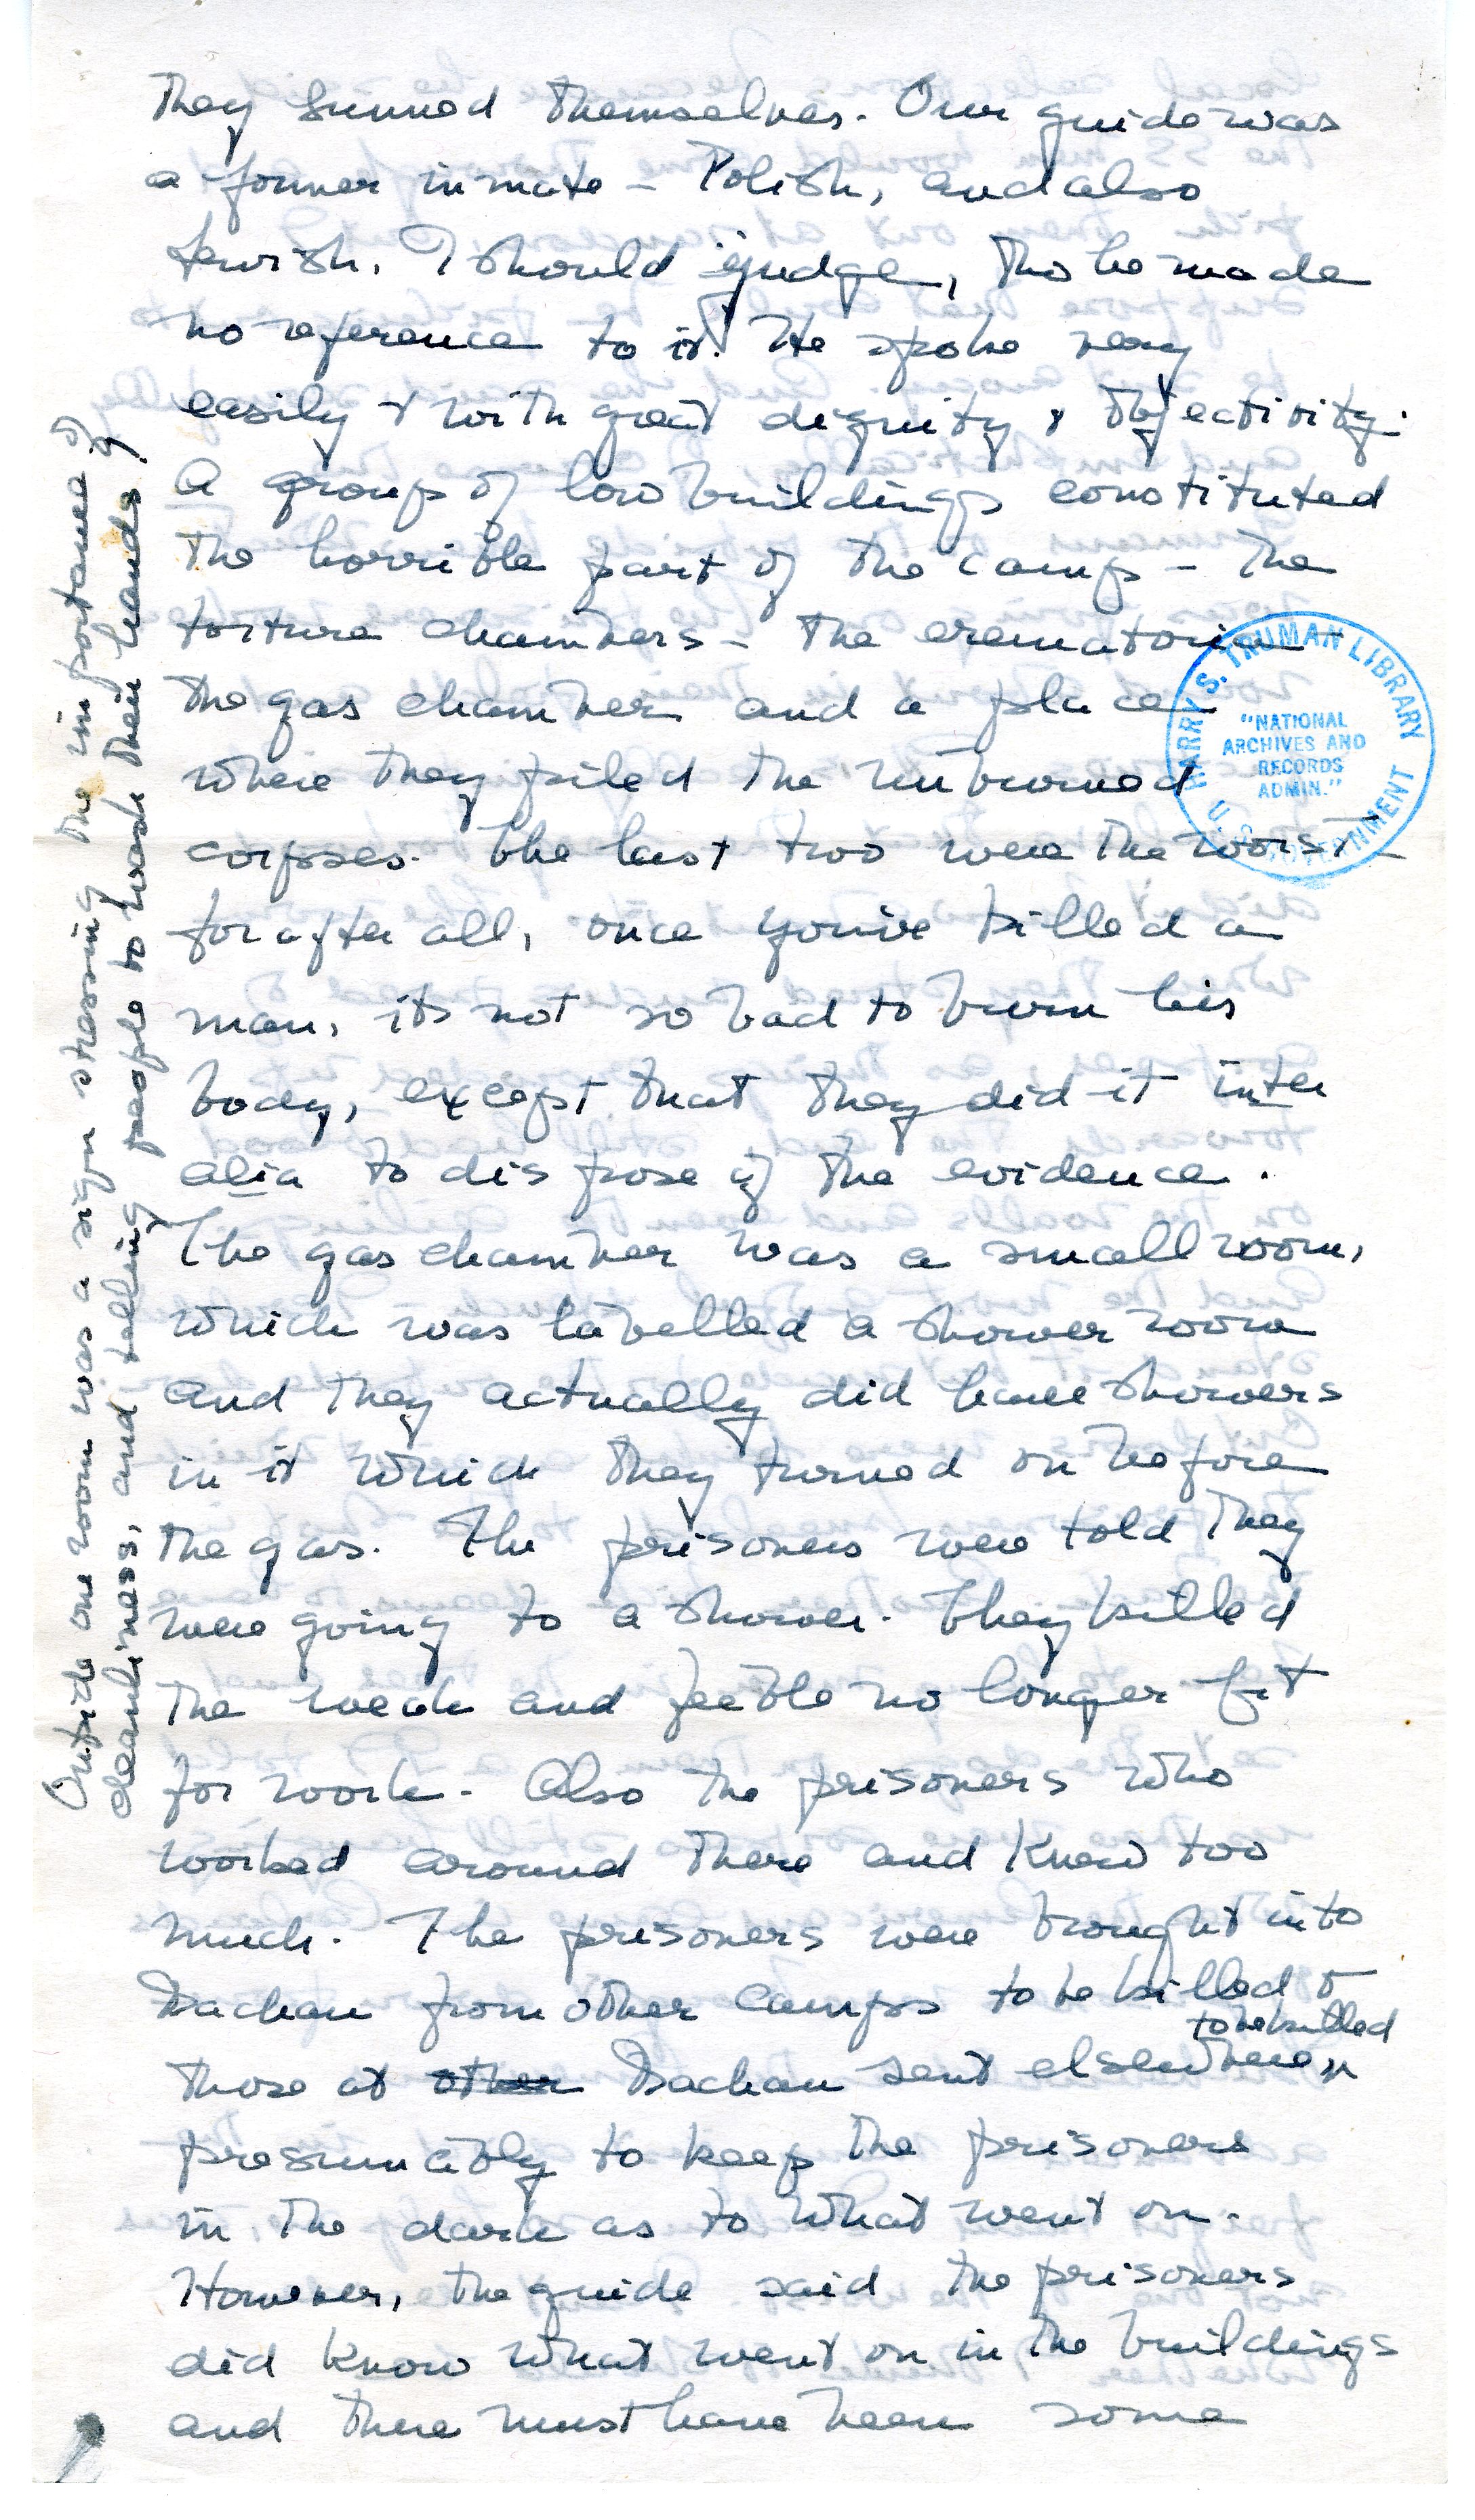 They sunned themselves. Our guide was
a former inmate - Polish, and also
Jewish, I should judge, tho he made
no reference to it. He spoke very
easily & with great dignity & objectivity.
A group of low buildings constituted
the horrible part of the camp - the
torture chambers - the crematoria
the gas chamber and a place
where they piled the unburned
corpses. The last two were the worst -
for after all, once you've killed a
man, its not so bad to burn his
body, except that they did it inter
alia to dispose of the evidence.
The gas chamber was a small room,
which was labelled a shower room
and they actually did have showers
in it which they turned on before
the gas. The prisoners were told they
were going to a shower. They killed
the weak and feeble no longer fit
for work. Also the prisoners who
worked around there and knew too
much. The prisoners were brought into
Dachau from other camps to be killed &
to be killed
those at other Dachau sent elsewhere
presumably to keep the prisoners
in the dark as to what went on.
However, the guide said the prisoners
did know what went on in the buildings
and there must have been some
Outside one room was a sign stressing the importance of
cleanliness, and telling people to wash their hands
HARRY S. TRUMAN LIBRARY
"NATIONAL
ARCHIVES AND
RECORDS
ADMIN."
U.S. GOVERNMENT